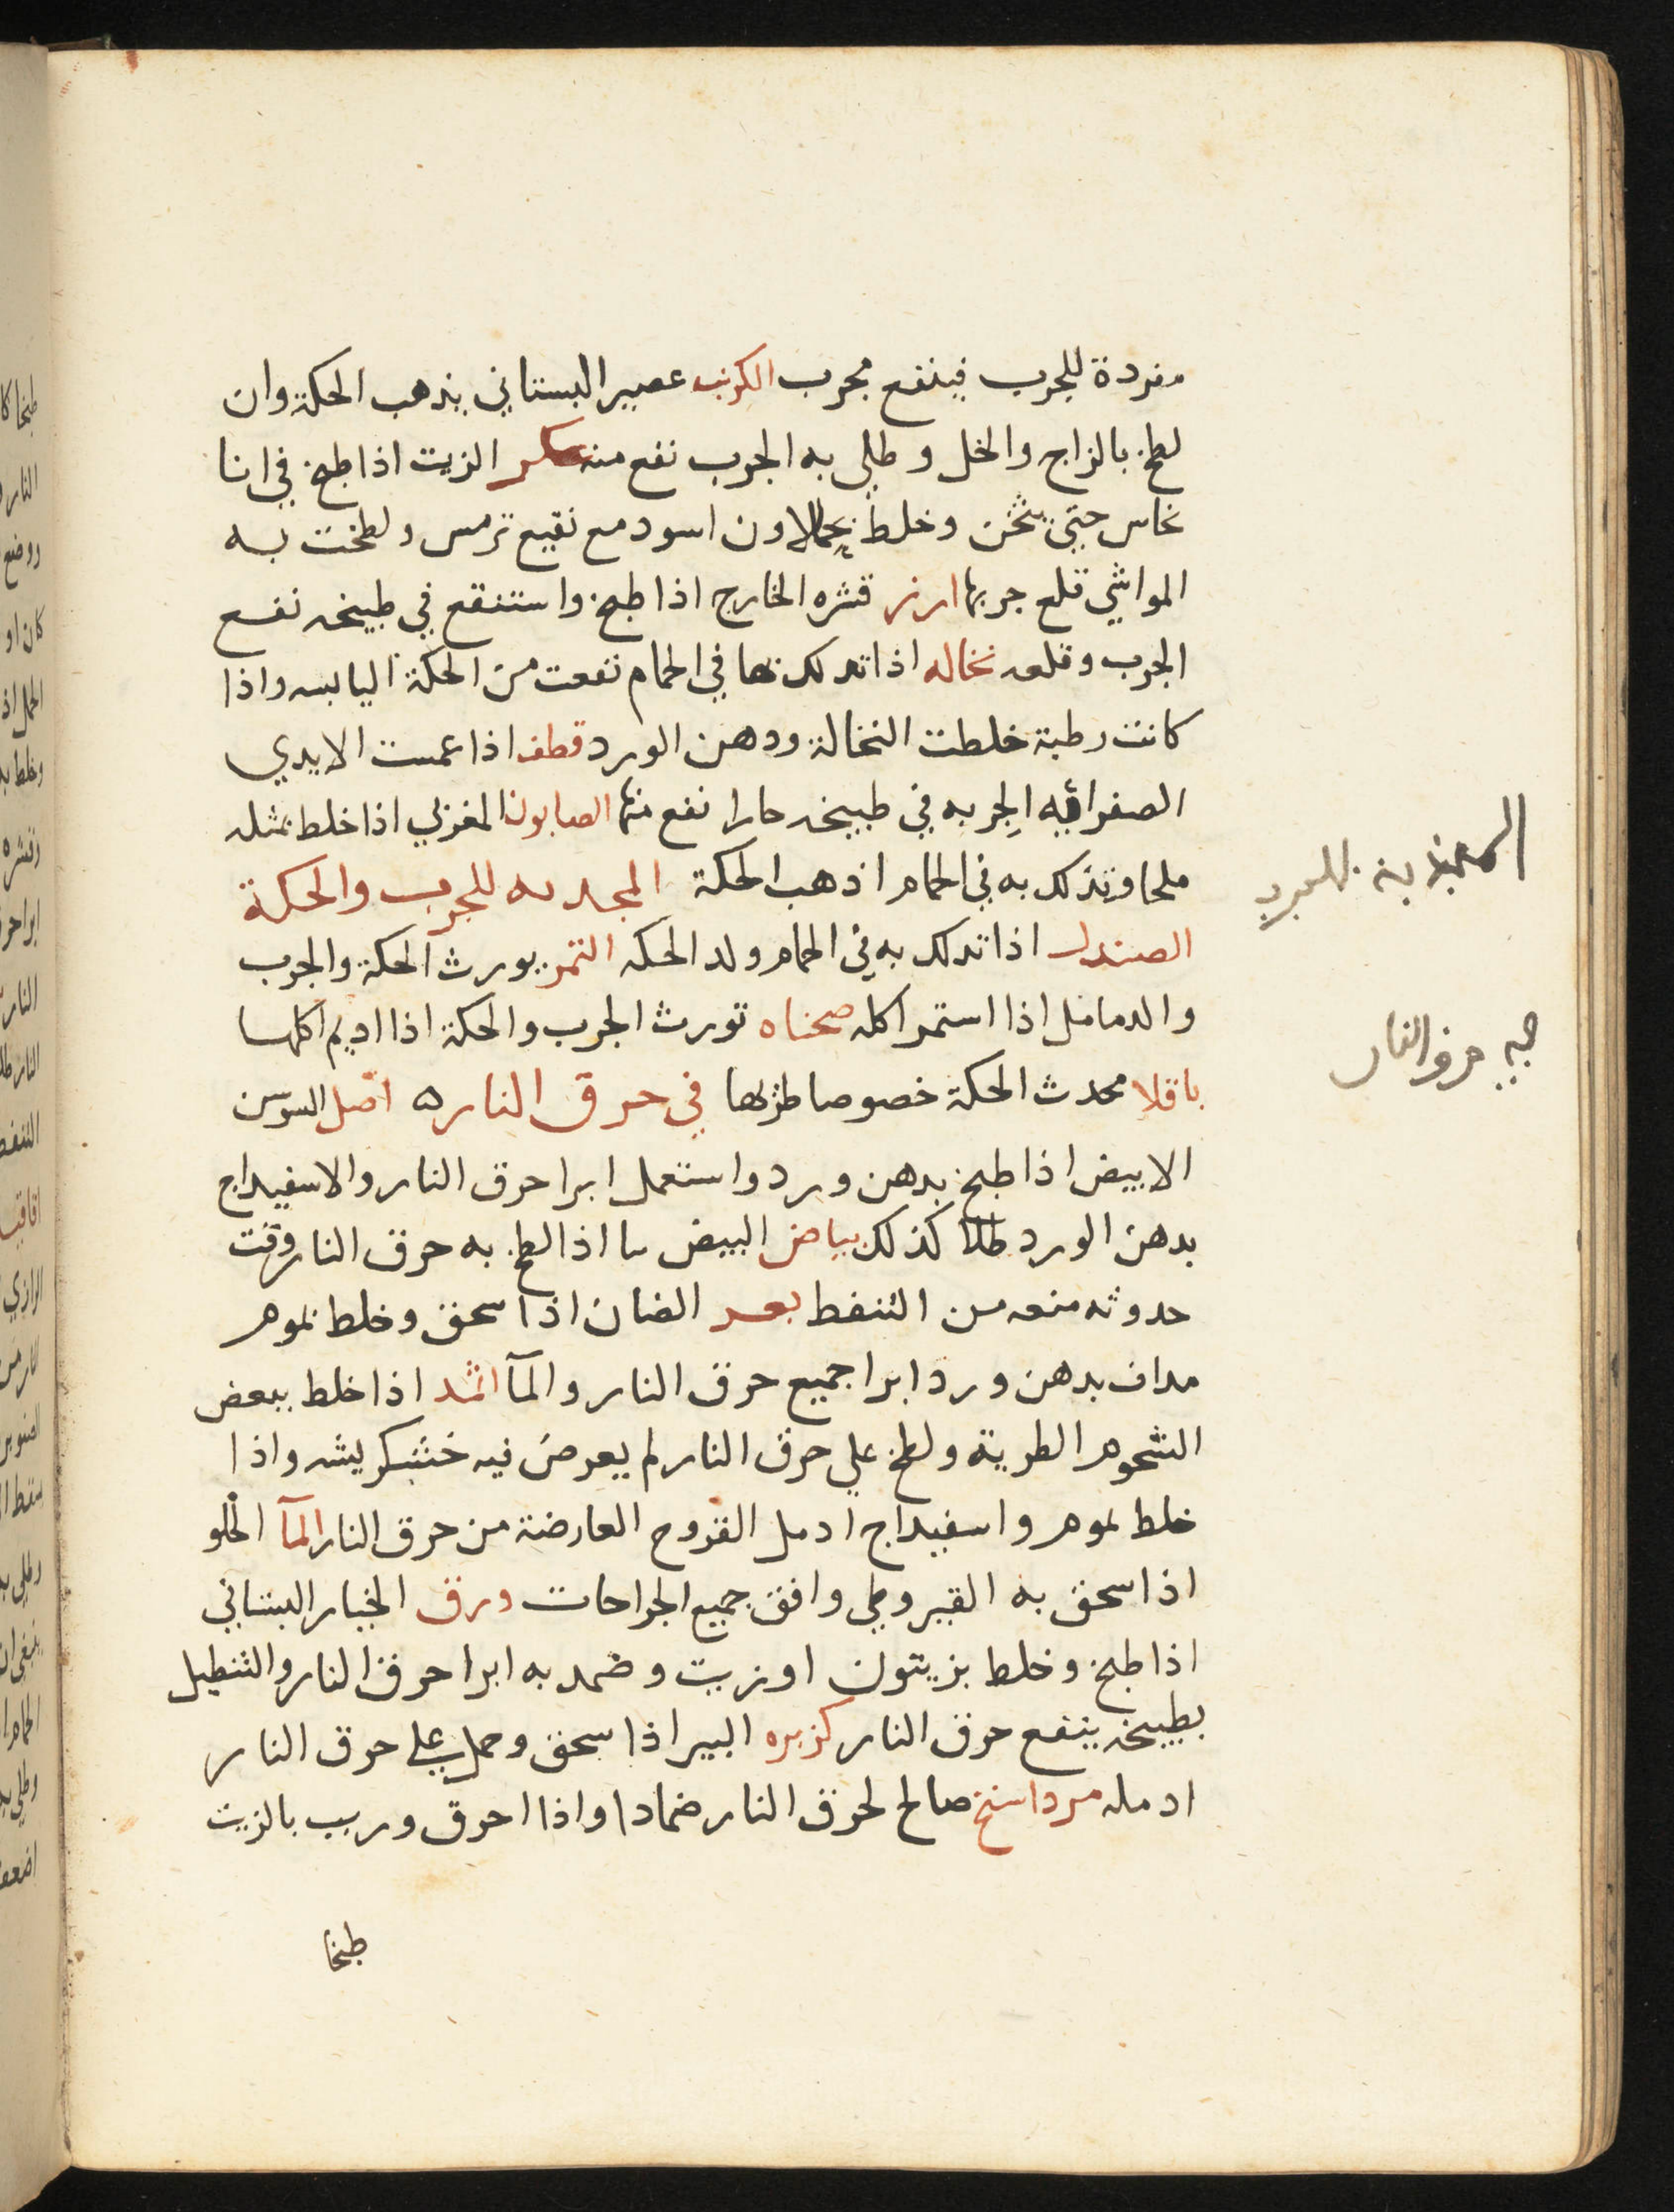 مفردة للجرب فينفع مجرب الكرنب عصير البستاني يذهب الحكة وان
لطخ بالزاج والخل وطلي به الجرب نفع منه عكر الزيت اذا طبخ في انا
نحاس حتى يثخن وخلط اسود مع نقيع ترمس ولطخت به
المواشي قلع جربها ارز قشره الخارج اذا طبخ واستنقع في طبيخه نفع
الجرب وقلعه نخاله اذا تدلك بها في الحمام نفعت من الحكة اليابسه واذا
كانت رطبة خلطت النخالة ودهن الورد قطف اذا غمست الايدي
الصفرائيه الجربه في طبيخه حارا نفع منها الصابون المغربي اذا خلط بمثله
ملحا وتدلك به في الحمام اذهب الحكة المجدبه للجرب والحكة
الصندل اذا تدلك به في الحمام ولد الحكه التمر يورث الحكة والجرب
والدمامل اذا استمر اكله صحناه تورث الجرب والحكة اذا اديم اكلها
باقلا محدث الحكة خصوصا طريها في حرق النار ه اصل السوسن
الابيض اذا طبخ بدهن ورد واستعمل ابرا حرق النار والاسفيداج
بدهن الورد طلا كذلك بياض البيض اذا لطخ به حرق النار وقت
حدوثه منعه من التنفط بعر الضان اذا سحق وخلط بموم
مداف بدهن ورد ابرا جميع حرق النار والمآ اثمد اذا خلط ببعض
الشحوم الطرية ولطخ علي حرق النار لم يعرض فيه خشكريشه واذا
خلط بموم واسفيداج ادمل القروح العارضة من حرق النار المآ الحلو
اذا سحق به القيروطي وافق جميع الجراحات ورق الخيار البستاني
اذا طبخ وخلط بزيتون اوزيت وضمد به ابرا حرق النار والتنطيل
بطبيخه ينفع حرق النار كزبره البير اذا سحق وحمل علي حرق النار
ادمله مرداسنج صالح لحرق النار ضمادا واذا احرق وربب بالزيت
طبخا
حرق النار